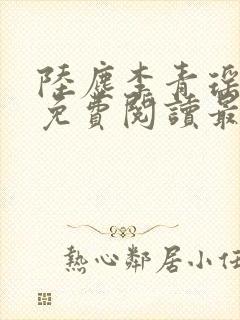 陸塵李青瑤
免費閱讀最
熱心鄰居小任